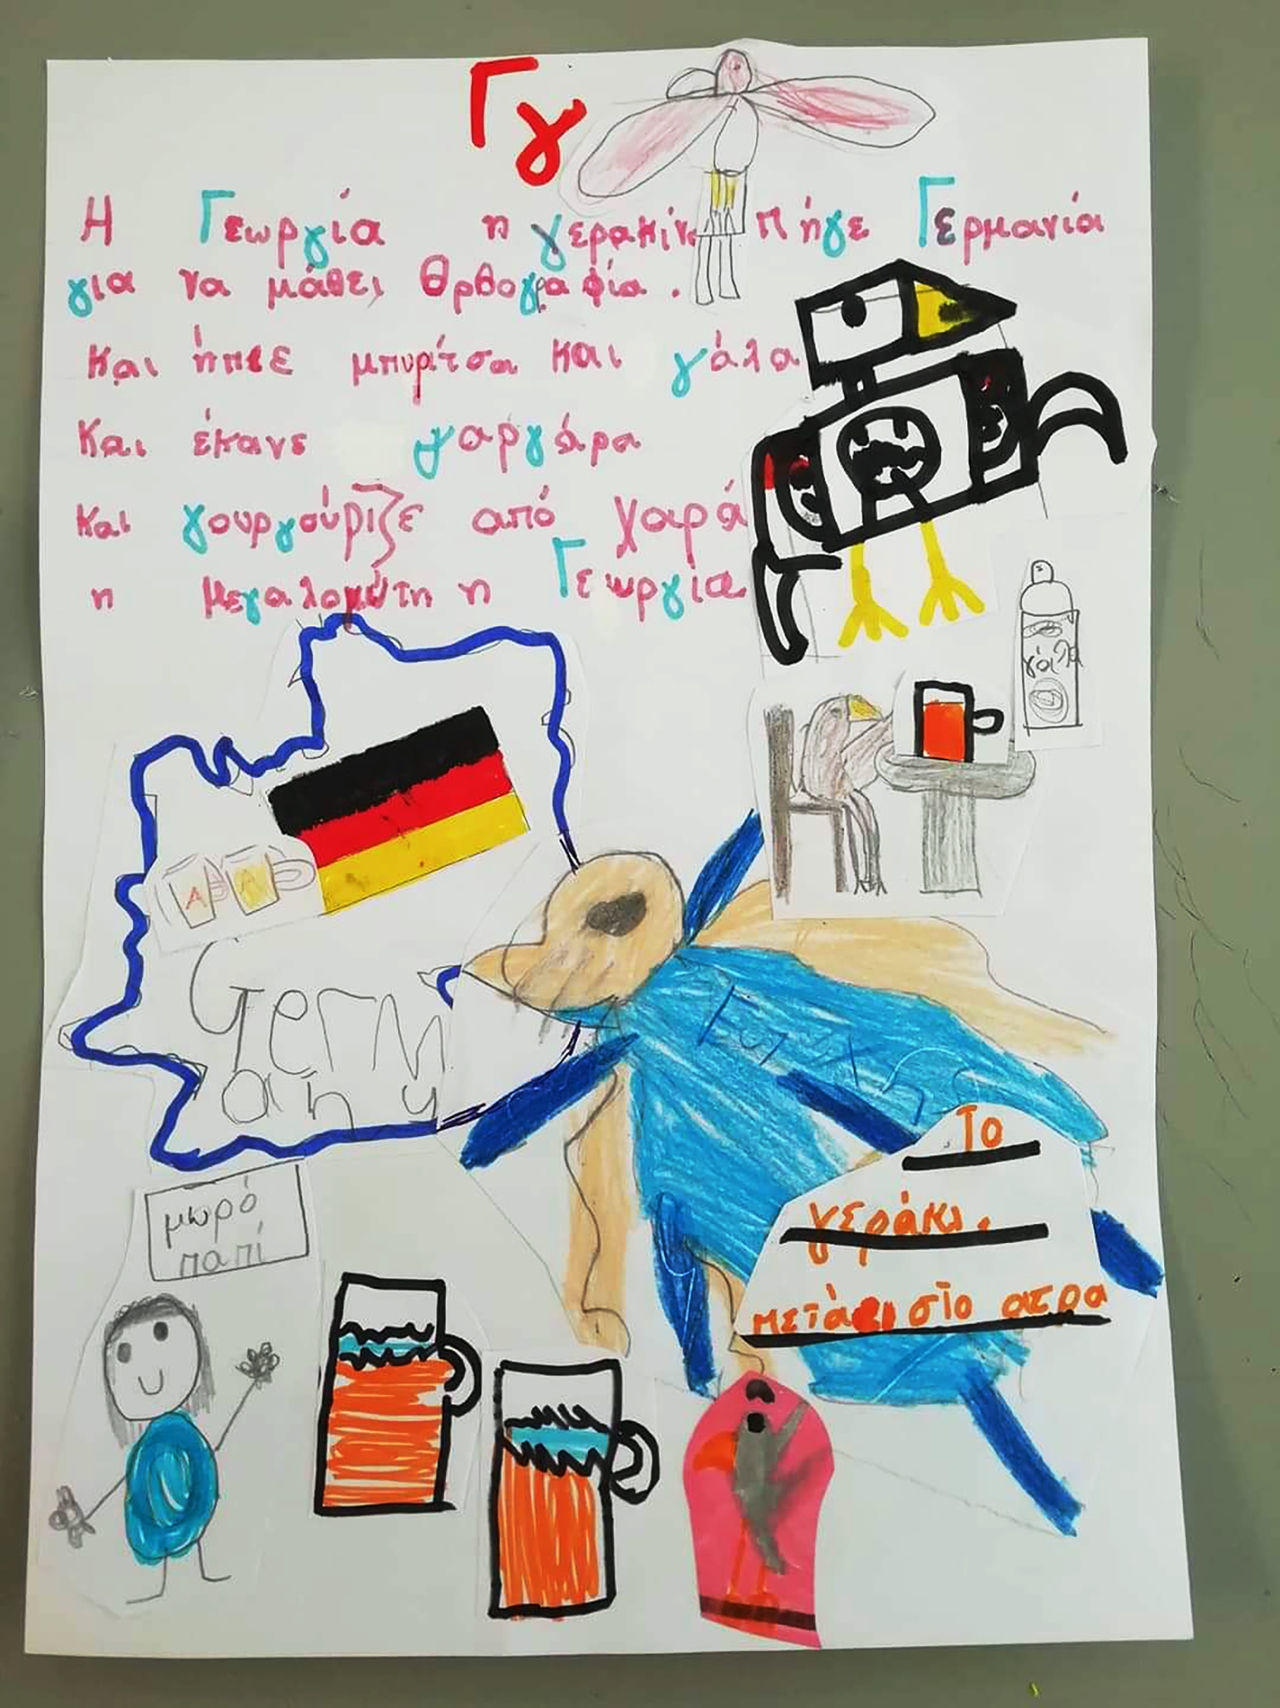 Γγ
Η Γεωργία η γερακίνα πήγε Γερμανία
για να μάθει Ορθογραφία.
Και ήπιε μπυρίτσα και γάλα
Και έκανε γαργάρα
Και γουργούριζε από χαρά
η μεγαλομύτη η Γεωργία
γάλα
A A
Germ
any
Το
γεράκι.
πετάει στο αερα
μωρό
παπί